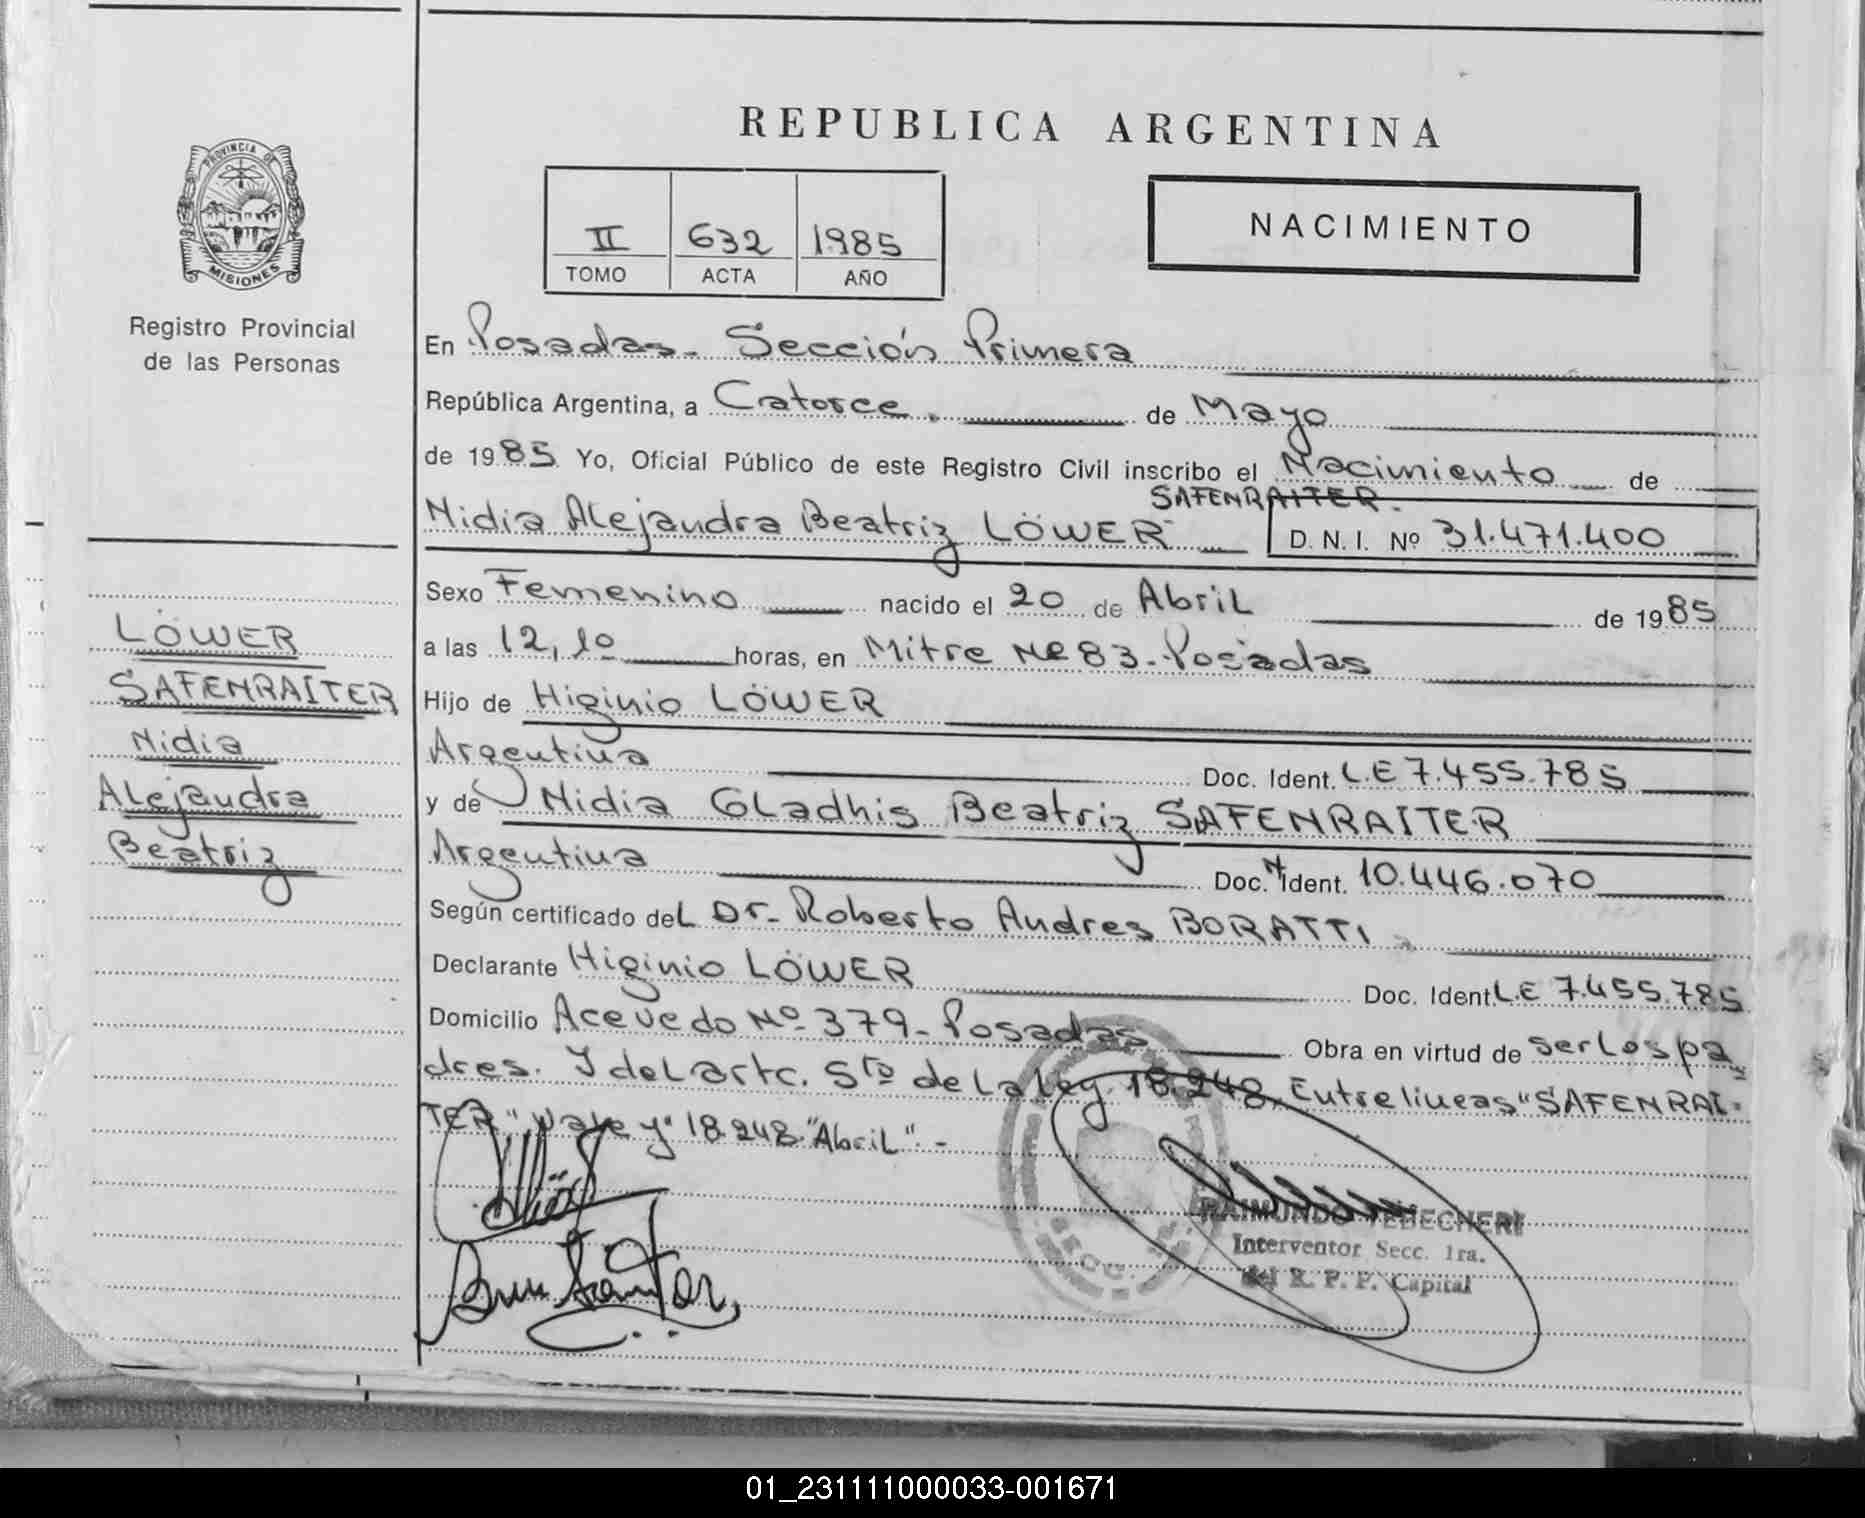 REPUBLICA ARGENTINA
PROVINCIA DE
MISIONES
Registro Provincial
de las Personas
II 632 1985
TOMO ACTA AÑO
NACIMIENTO
En Posadas. Sección Primera
República Argentina, a Catorce. de Mayo
de 1985 Yo, Oficial Público de este Registro Civil inscribo el Nacimiento de
SAFENRAITER.
Nidia Alejandra Beatriz LÖWER D. N. I. Nº 31.471.400
Sexo Femenino nacido el 20 de Abril de 1985
a las 12,10 horas, en Mitre Nº 83-Posadas
Hijo de Higinio LÖWER
Argentina Doc. Ident. L.E 7.455.785
y de Nidia Gladhis Beatriz SAFENRAITER
Argentina Doc. Ident. 10.446.070
Según certificado del Dr. Roberto Andres BORATTI
Declarante Higinio LÖWER Doc. Ident L.E 7.455.785
Domicilio Acevedo Nº 379-Posadas Obra en virtud de ser los pa
dres. Y del artc. 5to de la ley 18.248. Entrelineas "SAFENRAI-
TER" Vale y" 18.248 "Abril".-
LÖWER
SAFENRAITER
Nidia
Alejandra
Beatriz
RAIMUNDO TEBECHERI
Interventor Secc. 1ra.
del R. P. P. Capital
01_231111000033-001671